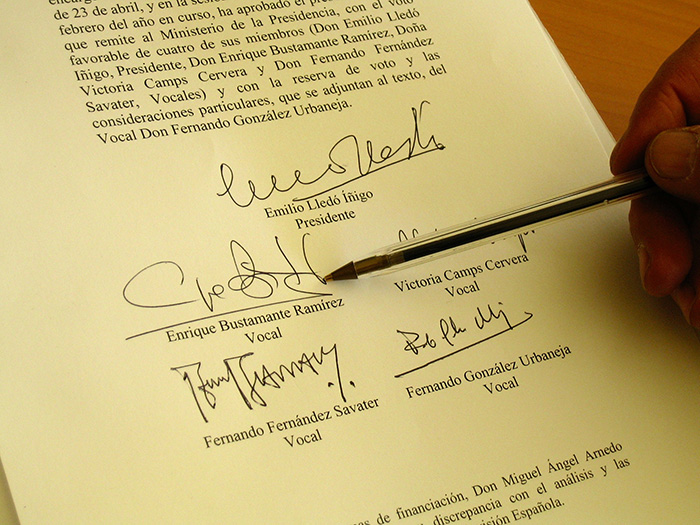 de 23 de abril, y en la
febrero del año en curso, ha aprobado el
que remite al Ministerio de la Presidencia, con el voto
favorable de cuatro de sus miembros (Don Emilio Lledó
Íñigo, Presidente, Don Enrique Bustamante Ramírez, Doña
Victoria Camps Cervera y Don Fernando Fernández
Savater, Vocales) y con la reserva de voto y las
consideraciones particulares, que se adjuntan al texto, del
Vocal Don Fernando González Urbaneja.
Emilio Lledó Íñigo
Presidente
Enrique Bustamante Ramírez
Vocal
Victoria Camps Cervera
Vocal
Fernando Fernández Savater
Vocal
Fernando González Urbaneja
Vocal
de financiación, Don Miguel Ángel Arnedo
discrepancia con el análisis y las
Española.